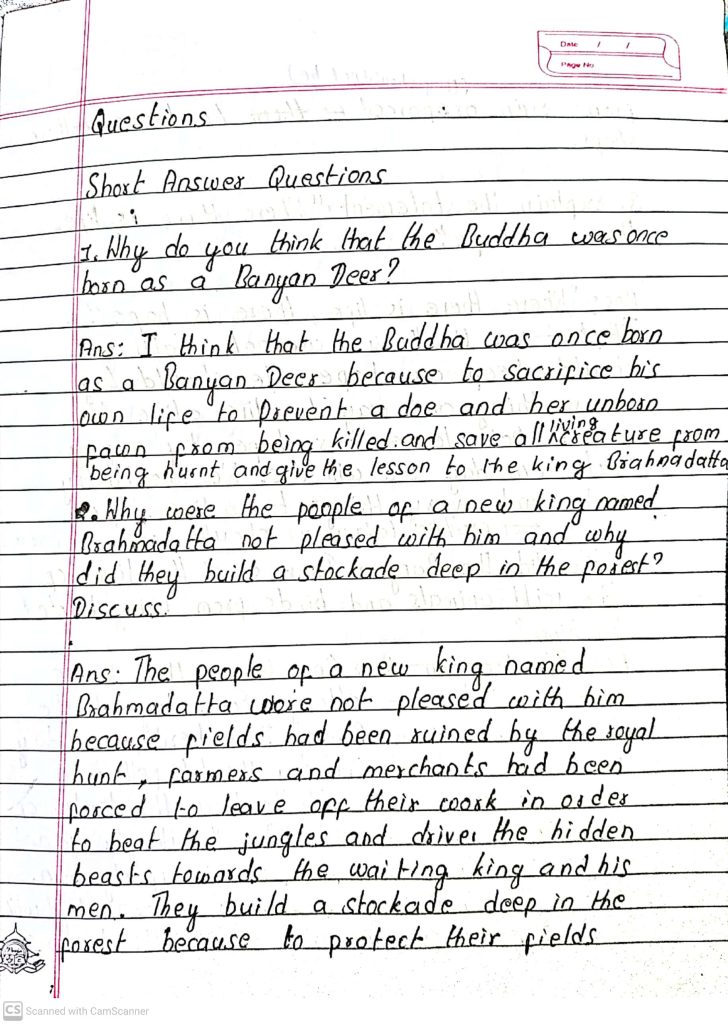 Date / /
Page No
Questions
Short Answer Questions
1. Why do you think that the Buddha was once
born as a Banyan Deer?
Ans: I think that the Buddha was once born
as a Banyan Deer because to sacrifice his
own life to prevent a doe and her unborn
fawn from being killed. and save all living creature from
being hurnt and give the lesson to the king Brahmadatta
2. Why were the people of a new king named
Brahmadatta not pleased with him and why
did they build a stockade deep in the forest?
Discuss.
Ans. The people of a new king named
Brahmadatta were not pleased with him
because fields had been ruined by the royal
hunt, farmers and merchants had been
forced to leave off their work in order
to beat the jungles and drive the hidden
beasts towards the waiting king and his
men. They build a stockade deep in the
forest because to protect their fields
CS Scanned with CamScanner